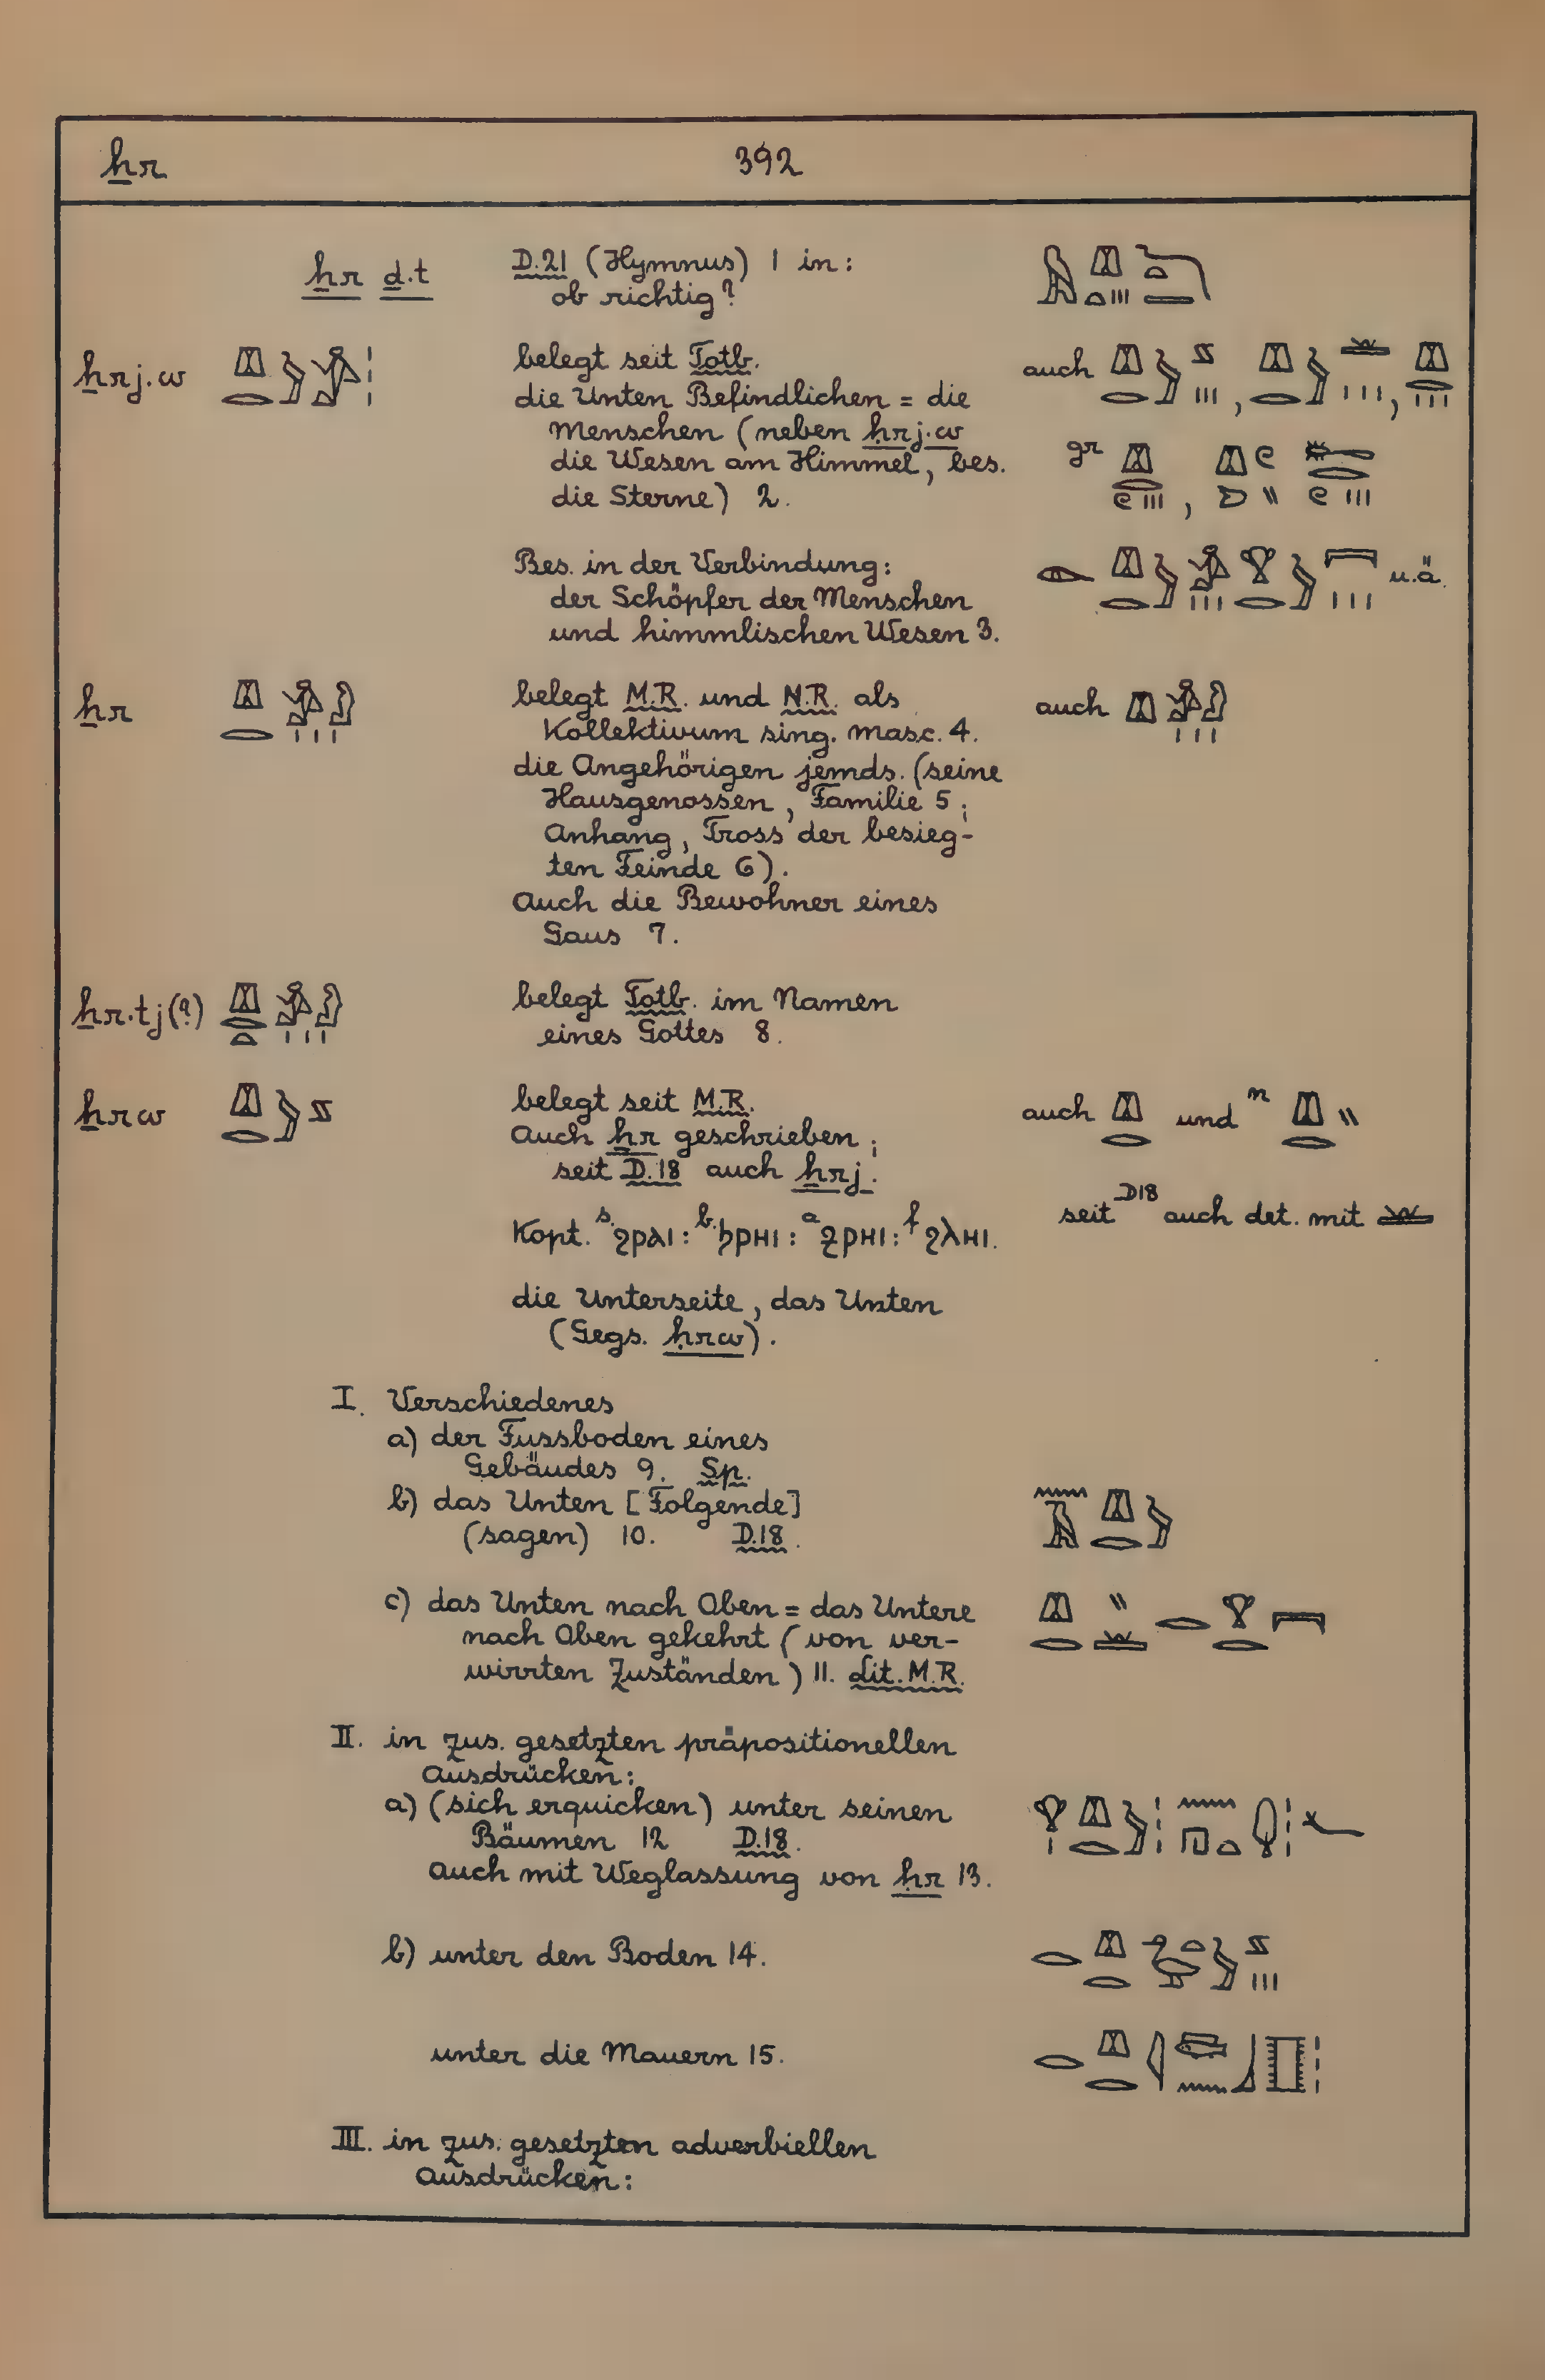 ẖr 392
ẖr ḏ.t D.21 (Hymnus) 1 in:
ob richtig?
ẖrj.w belegt seit Totb. auch
die Unten Befindlichen = die
Menschen (neben ḥrj.w
die Wesen am Himmel, bes. gr
die Sterne) 2.
Bes. in der Verbindung:
der Schöpfer der Menschen u.ä.
und himmlischen Wesen 3.
ẖr belegt M.R. und N.R. als auch
Kollektivum sing. masc. 4.
die Angehörigen jemds. (seine
Hausgenossen, Familie 5;
Anhang, Tross der besieg-
ten Feinde 6).
Auch die Bewohner eines
Gaus 7.
ẖr.tj(?) belegt Totb. im Namen
eines Gottes 8.
ẖrw belegt seit M.R. auch und n
Auch ẖr geschrieben;
seit D.18 auch ẖrj.
seit D18 auch det. mit
Kopt. s. ϩⲣⲁⲓ: b. ϧⲣⲏⲓ: a ⳉⲣⲏⲓ: f ϩⲗⲏⲓ.
die Unterseite, das Unten
(Gegs. ḥrw).
I. Verschiedenes
a) der Fussboden eines
Gebäudes 9. Sp.
b) das Unten [Folgende]
(sagen) 10. D.18.
c) das Unten nach Oben = das Untere
nach Oben gekehrt (von ver-
wirrten Zuständen) 11. Lit. M.R.
II. in zus. gesetzten präpositionellen
Ausdrücken:
a) (sich erquicken) unter seinen
Bäumen 12 D.18.
auch mit Weglassung von ḥr 13.
b) unter den Boden 14.
unter die Mauern 15.
III. in zus. gesetzten adverbiellen
Ausdrücken: